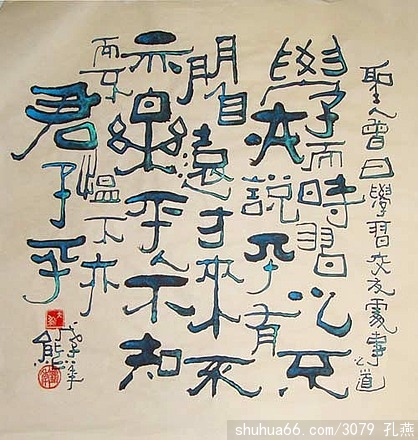 聖人曾曰學習交友處事之道
學而時習之不
亦說乎有
朋自遠方來不
亦樂乎人不知
而不慍不亦
君子乎
熊
shuhua66.com/3079 孔燕